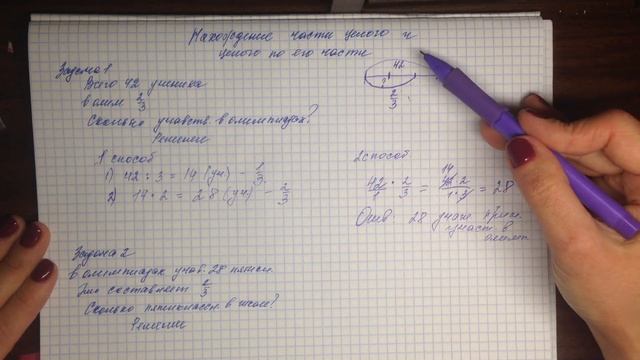 Нахождение части целого и
целого по его части
Задача 1
Всего 42 ученика
в олим 2/3
Сколько участв в олимпиадах?
Решение
42
?
2/3
1 способ
1) 42 : 3 = 14 (уч) – 1/3
2) 14 · 2 = 28 (уч) – 2/3
2 способ
42/1 · 2/3 = 42 · 2/1 · 3 = 28
14
Отв: 28
участ в
олимп
Задача 2
в олимпиадах участ. 28
Это составляет 2/3
Сколько пятиклассн. в школе?
Решение